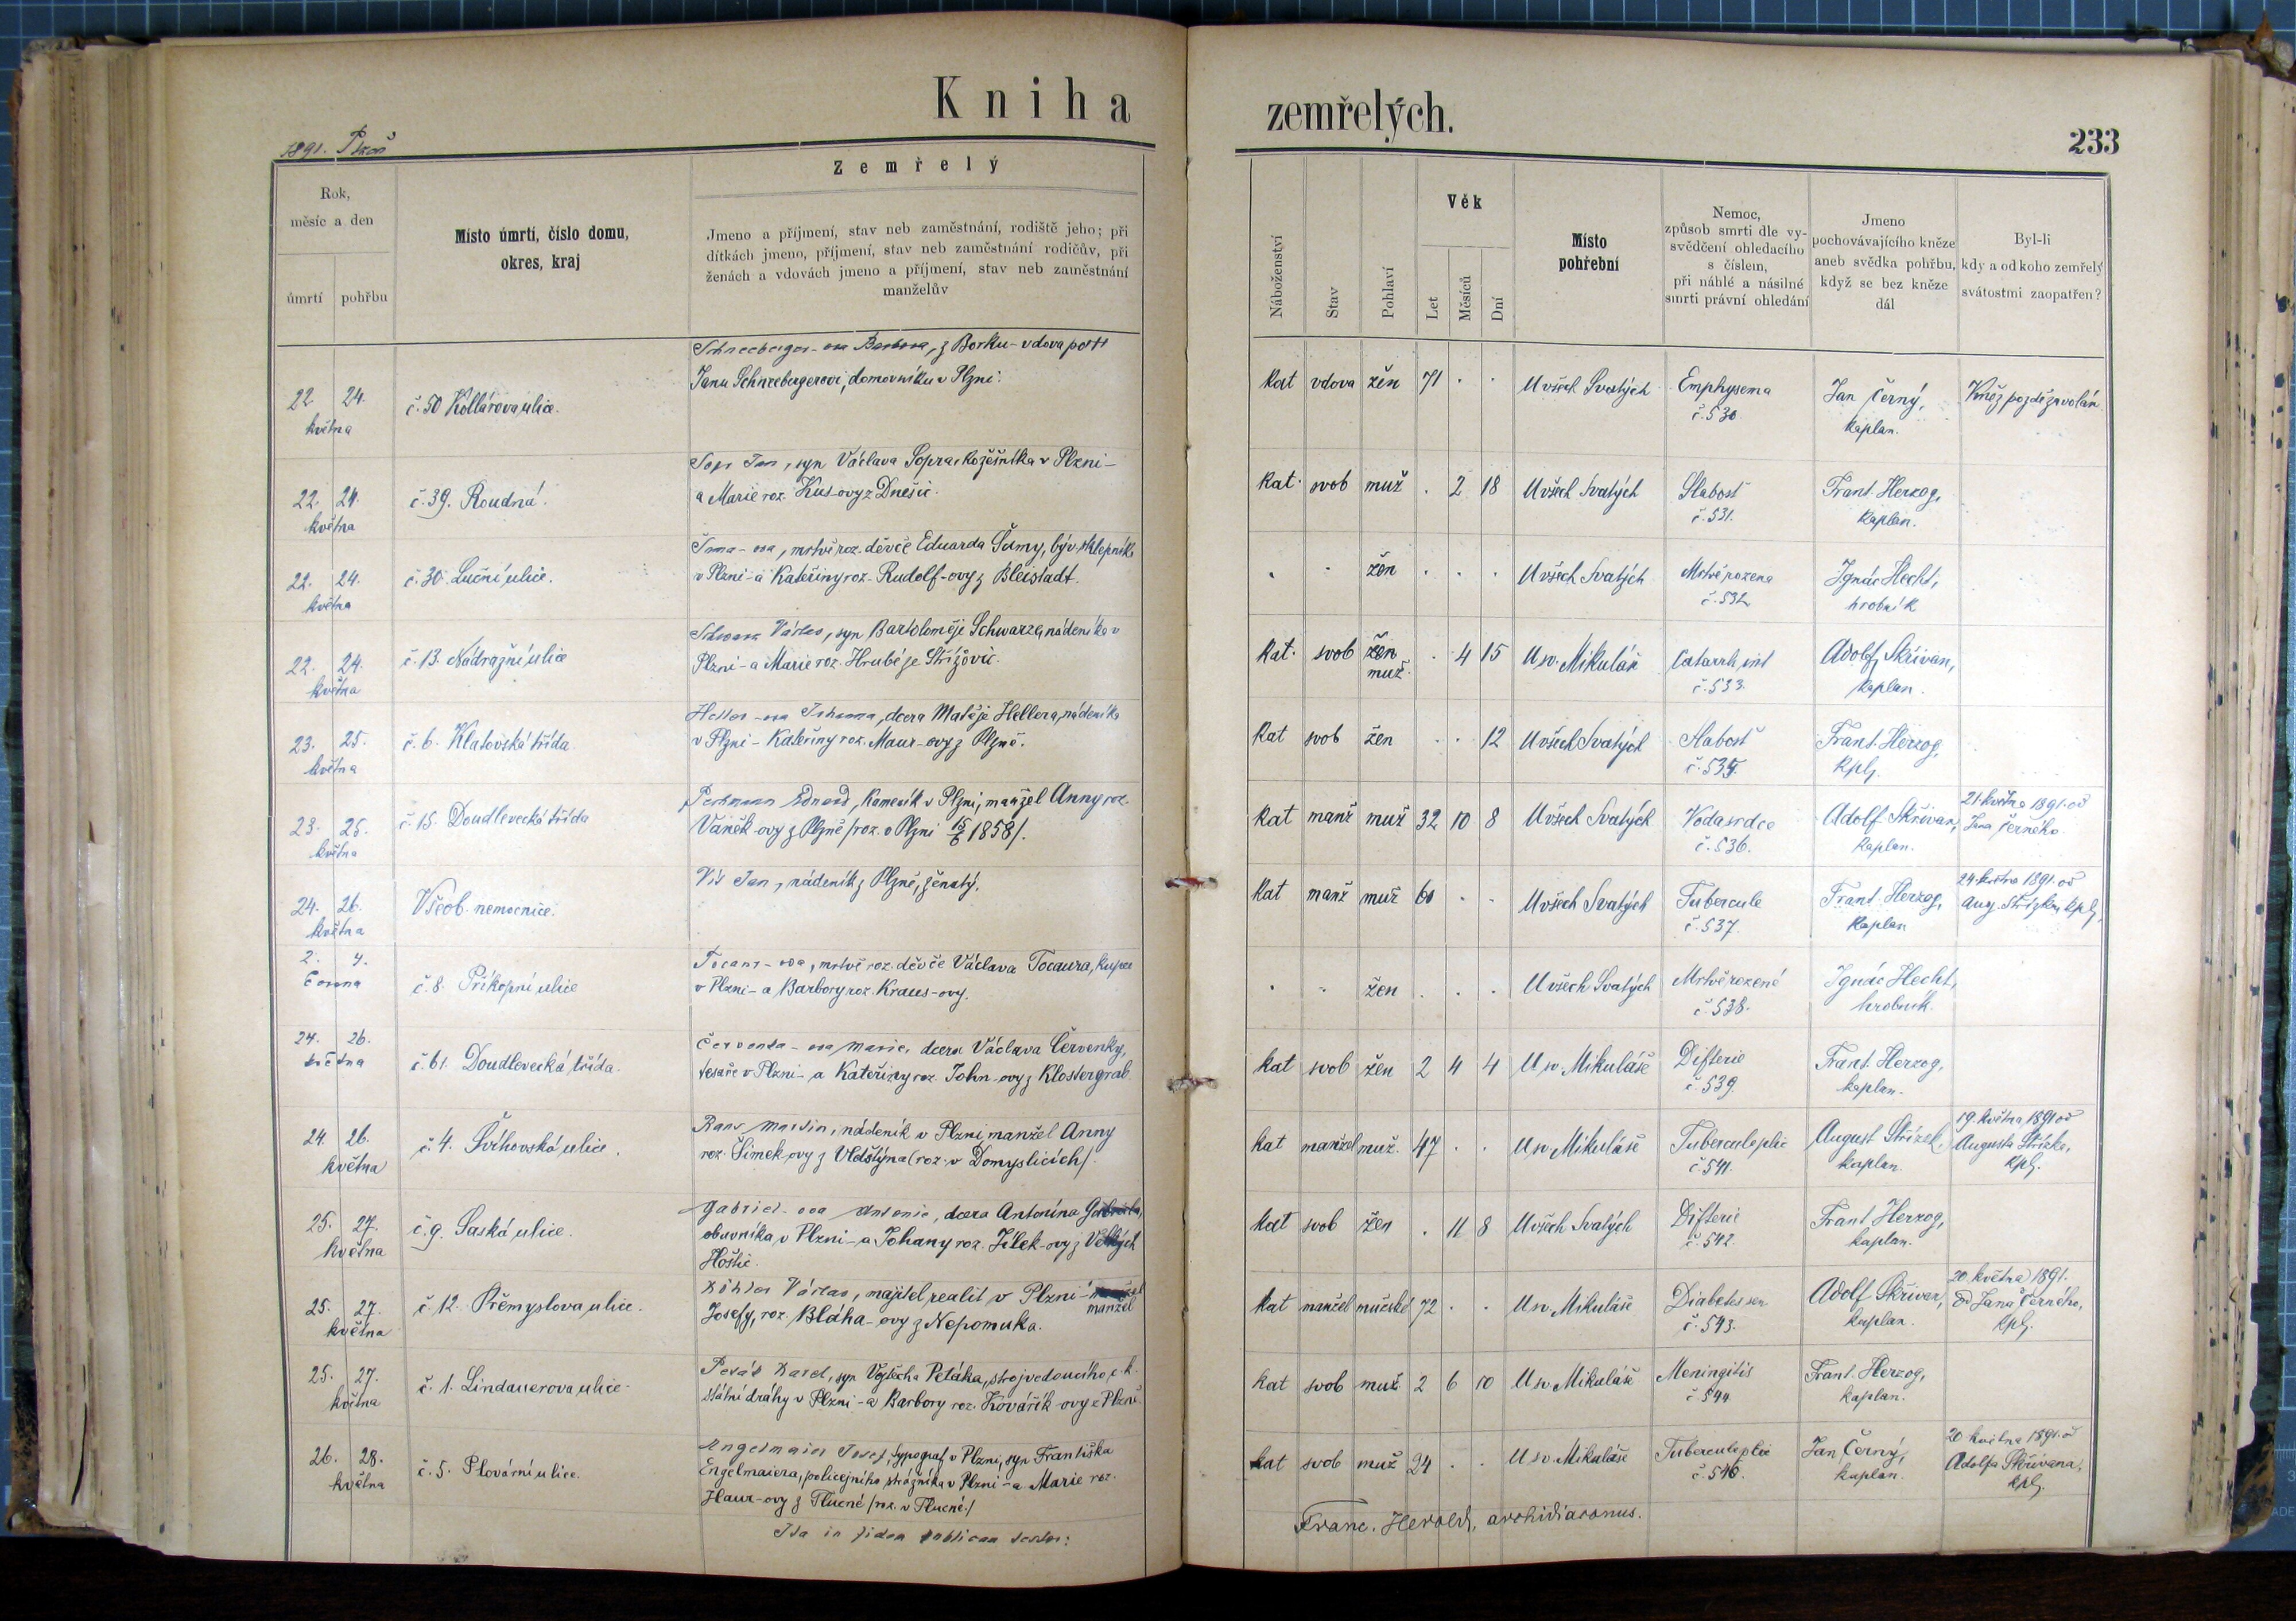 Kniha
zemřelých.
1891. Plzeň
233
Zemřelý
Rok,
měsíc a den
úmrtí
pohřbu
Místo úmrtí, číslo domu,
okres, kraj
Jmeno a příjmení, stav neb zaměstnání, rodiště jeho; při
dítkách jmeno, příjmení, stav neb zaměstnání rodičův, při
ženách a vdovách jmeno a příjmení, stav neb zaměstnání
manželův
Náboženství
Stav
Pohlaví
Věk
Let
Měsíců
Dní
Místo
pohřební
Nemoc,
způsob smrti dle vy-
svědčení ohledacího
s číslem,
při náhlé a násilné
smrti právní ohledání
Jmeno
pochovávajícího kněze
aneb svědka pohřbu,
když se bez kněze
dál
Byl-li
kdy a od koho zemřelý
svátostmi zaopatřen?
22. 24.
května
č. 50 Kollárova ulice.
Schneeberger-ova Barbora, z Borku - vdova po ††
Janu Schneebergerovi, domovníku v Plzni.
kat vdova žen 71 . . U všech Svatých
Emphysema
č. 530
Jan Černý,
kaplan.
Kněz pozdě zavolán
22. 24.
května
č. 39. Roudná.
Sopr Jan, syn Václava Sopra, kožešníka v Plzni -
a Marie roz. Kus-ovy z Dnešic.
kat. svob muž . 2 18 U všech Svatých
Slabost
č. 531.
Frant. Herzog,
kaplan.
22. 24.
května
č. 30. Luční ulice.
Šuma-ova, mrtvě roz. děvče Eduarda Šumy, býv. sklepníka
v Plzni - a Kateřiny roz. Rudolf-ovy z Bleistadt.
. . žen . . . U všech Svatých
Mrtvě rozena
č. 532
Ignác Hecht,
hrobník
22. 24.
května
č. 13. Nádražní ulice
Schwarz Václav, syn Bartoloměje Schwarze, nádeníka v
Plzni - a Marie roz. Hrubé ze Střížovic.
kat. svob žen
muž.
. 4 15 U sv. Mikuláše
Catarrh int
č. 533.
Adolf Skřivan,
kaplan.
23. 25.
května
č. 6. Klatovská třída.
Heller-ova Johanna, dcera Matěje Hellera, nádeníka
v Plzni - Kateřiny roz. Maur-ovy z Plzně.
kat svob žen . . 12 U všech Svatých
Slabost
Frant. Herzog,
kplj.
23. 25.
května
č. 15. Doudlevecká třída
Eduard, kameník v Plzni, manžel Anny roz.
Vaněk-ovy z Plzně /roz. v Plzni 1858/.
kat manž muž 32 10 8 U všech Svatých
Voda srdce
č. 536.
Adolf Skřivan,
kaplan.
21. května 1891 od
Jana Černého
24. 26.
května
Všeob. nemocnice.
Jan, nádeník z Plzně, ženatý.
kat manž muž 60 . . U všech Svatých
Tubercule
č. 537.
Frant. Herzog,
kaplan
24. května 1891 od
Aug. Střížka, kplj.
2. 4.
června
č. 8. Příkopní ulice
Tocaur-ova, mrtvě roz. děvče Václava Tocaura, kupce
v Plzni - a Barbory roz. Kraus-ovy.
. . žen . . . U všech Svatých
Mrtvě rozené
č. 538.
Ignác Hecht,
hrobník.
24. 26.
května
č. 61. Doudlevecká třída.
Červenka-ova Marie, dcera Václava Červenky,
tesaře v Plzni - a Kateřiny roz. John-ovy z Klostergrab.
kat svob žen 2 4 4 U sv. Mikuláše
Difterie
č. 539.
Frant. Herzog,
kaplan.
24. 26.
května
č. 4. Švihovská ulice.
Martin, nádeník v Plzni, manžel Anny
roz. Šimek-ovy z Vldštýna (roz. v Domyslicích/.
kat manžel muž. 47 . . U sv. Mikuláše
Tubercule plic
č. 541.
August Střížek,
kaplan.
19. května 1891 od
Augusta Střížka,
kplj.
25. 27.
května
č. 9. Saská ulice.
Gabriel-ova Antonie, dcera Antonína Gabriela,
obuvníka v Plzni - a Johany roz. Jílek-ovy z Velkých
Hoštic.
kat svob žen . 11 8 U všech Svatých
Difterie
č. 542.
Frant. Herzog,
kaplan.
25. 27.
května
č. 12. Přemyslova ulice.
Köhler Václav, majitel realit v Plzni -
manžel
Josefy, roz. Bláha-ovy z Nepomuka.
kat manžel mužské 72 . . U sv. Mikuláše
Diabetes sen
č. 543.
Adolf Skřivan,
kaplan.
20. května 1891.
od Jana Černého,
kplj.
25. 27.
května
č. 1. Lindauerova ulice.
Peták Karel, syn Vojtěcha Petáka, strojvedoucího c. k.
státní dráhy v Plzni - a Barbory roz. Kovářík-ovy z Plzně.
kat svob muž 2 6 10 U sv. Mikuláše
Meningitis
č. 544
Frant. Herzog,
kaplan.
26. 28.
května
č. 5. Plovární ulice.
Engelmaier Josef, typograf v Plzni, syn Františka
Engelmaiera, policejního strážníka v Plzni - a Marie roz.
Haur-ovy z Tlucné /nar. v Tlucné./
kat svob muž 24 . . U sv. Mikuláše
Tubercule plic
č. 546.
Jan Černý,
kaplan.
20 května 1891 od
Adolfa Skřivana,
kplj.
Ita in fidem publicam testor:
Franc. Herold, archidiaconus.